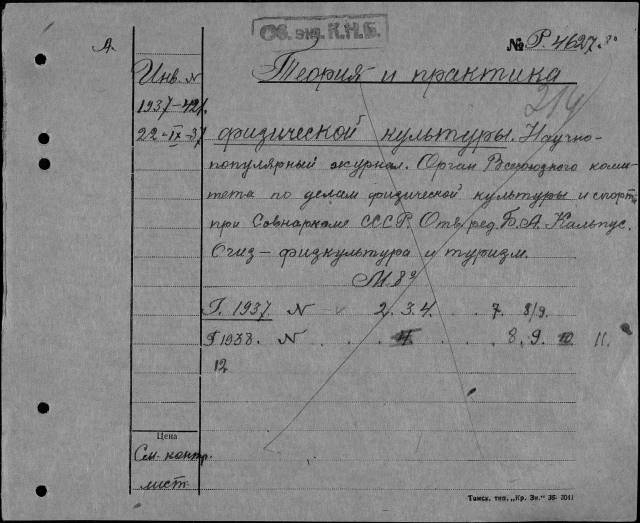 Об. экз. К.Н.Б.
А.
№ Р. 4627.
Инв. N
Теория и практика
1937-421.
214
22-IX-37
физической культуры. Научно-
популярный журнал. Орган Всесоюзного коми-
тета по делам физической культуры и спорта
при Совнаркоме СССР. Отв. ред. Б.А. Кальпус.
Огиз - физкультура и туризм.
М. 8º
Г. 1937. N 2. 3. 4. . . 7. 8/9.
Г 1938. N . . . 4 . . . 8. 9. 10 11.
12
Цена
См. контр.
лист.
Томск. тип. „Кр. Зн." 36-3041